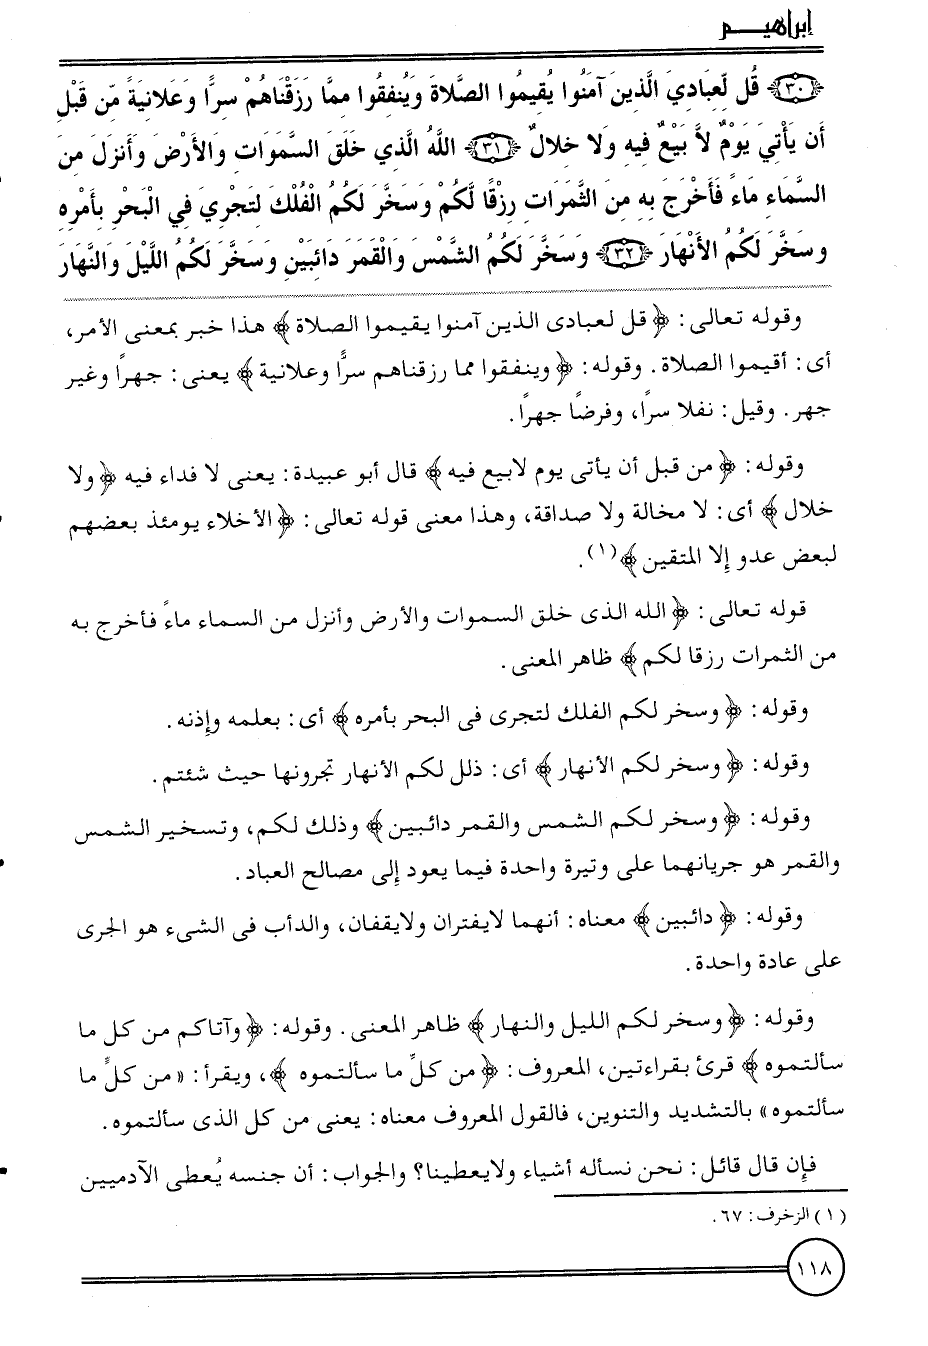 إبراهيم
﴿٣٠﴾ قُل لِّعِبَادِيَ الَّذِينَ آمَنُوا يُقِيمُوا الصَّلاةَ وَيُنفِقُوا مِمَّا رَزَقْنَاهُمْ سِرًّا وَعَلانِيَةً مِّن قَبْلِ
أَن يَأْتِيَ يَوْمٌ لاَّ بَيْعٌ فِيهِ وَلا خِلالٌ ﴿٣١﴾ اللَّهُ الَّذِي خَلَقَ السَّمَوَاتِ وَالأَرْضَ وَأَنزَلَ مِنَ
السَّمَاءِ مَاءً فَأَخْرَجَ بِهِ مِنَ الثَّمَرَاتِ رِزْقًا لَّكُمْ وَسَخَّرَ لَكُمُ الْفُلْكَ لِتَجْرِيَ فِي الْبَحْرِ بِأَمْرِهِ
وَسَخَّرَ لَكُمُ الأَنْهَارَ ﴿٣٢﴾ وَسَخَّرَ لَكُمُ الشَّمْسَ وَالْقَمَرَ دَائِبَيْنِ وَسَخَّرَ لَكُمُ اللَّيْلَ وَالنَّهَارَ
وقوله تعالى: ﴿قل لعبادى الذين آمنوا يقيموا الصلاة﴾ هذا خبر بمعنى الأمر،
أى: أقيموا الصلاة. وقوله: ﴿وينفقوا مما رزقناهم سرًّا وعلانية﴾ يعنى: جهراً وغير
جهر. وقيل: نفلا سراً، وفرضًا جهراً.
وقوله: ﴿من قبل أن يأتى يوم لابيع فيه﴾ قال أبو عبيدة: يعنى لا فداء فيه ﴿ولا
خلال﴾ أى: لا مخالة ولا صداقة، وهذا معنى قوله تعالى: ﴿الأخلاء يومئذ بعضهم
لبعض عدو إلا المتقين﴾(١).
قوله تعالى: ﴿الله الذى خلق السموات والأرض وأنزل من السماء ماءً فأخرج به
من الثمرات رزقا لكم﴾ ظاهر المعنى.
وقوله: ﴿وسخر لكم الفلك لتجرى فى البحر بأمره﴾ أى: بعلمه وإذنه.
وقوله: ﴿وسخر لكم الأنهار﴾ أى: ذلل لكم الأنهار تجرونها حيث شئتم.
وقوله: ﴿وسخر لكم الشمس والقمر دائبين﴾ وذلك لكم، وتسخير الشمس
والقمر هو جريانهما على وتيرة واحدة فيما يعود إلى مصالح العباد.
وقوله: ﴿دائبين﴾ معناه: أنهما لايفتران ولايقفان، والدأب فى الشىء هو الجرى
على عادة واحدة.
وقوله: ﴿وسخر لكم الليل والنهار﴾ ظاهر المعنى. وقوله: ﴿وآتاكم من كل ما
سألتموه﴾ قرئ بقراءتين، المعروف: ﴿من كلِّ ما سألتموه﴾، ويقرأ: «من كلٍّ ما
سألتموه» بالتشديد والتنوين، فالقول المعروف معناه: يعنى من كل الذى سألتموه.
فإن قال قائل: نحن نسأله أشياء ولايعطينا؟ والجواب: أن جنسه يُعطى الآدميين
(١) الزخرف: ٦٧.
١١٨